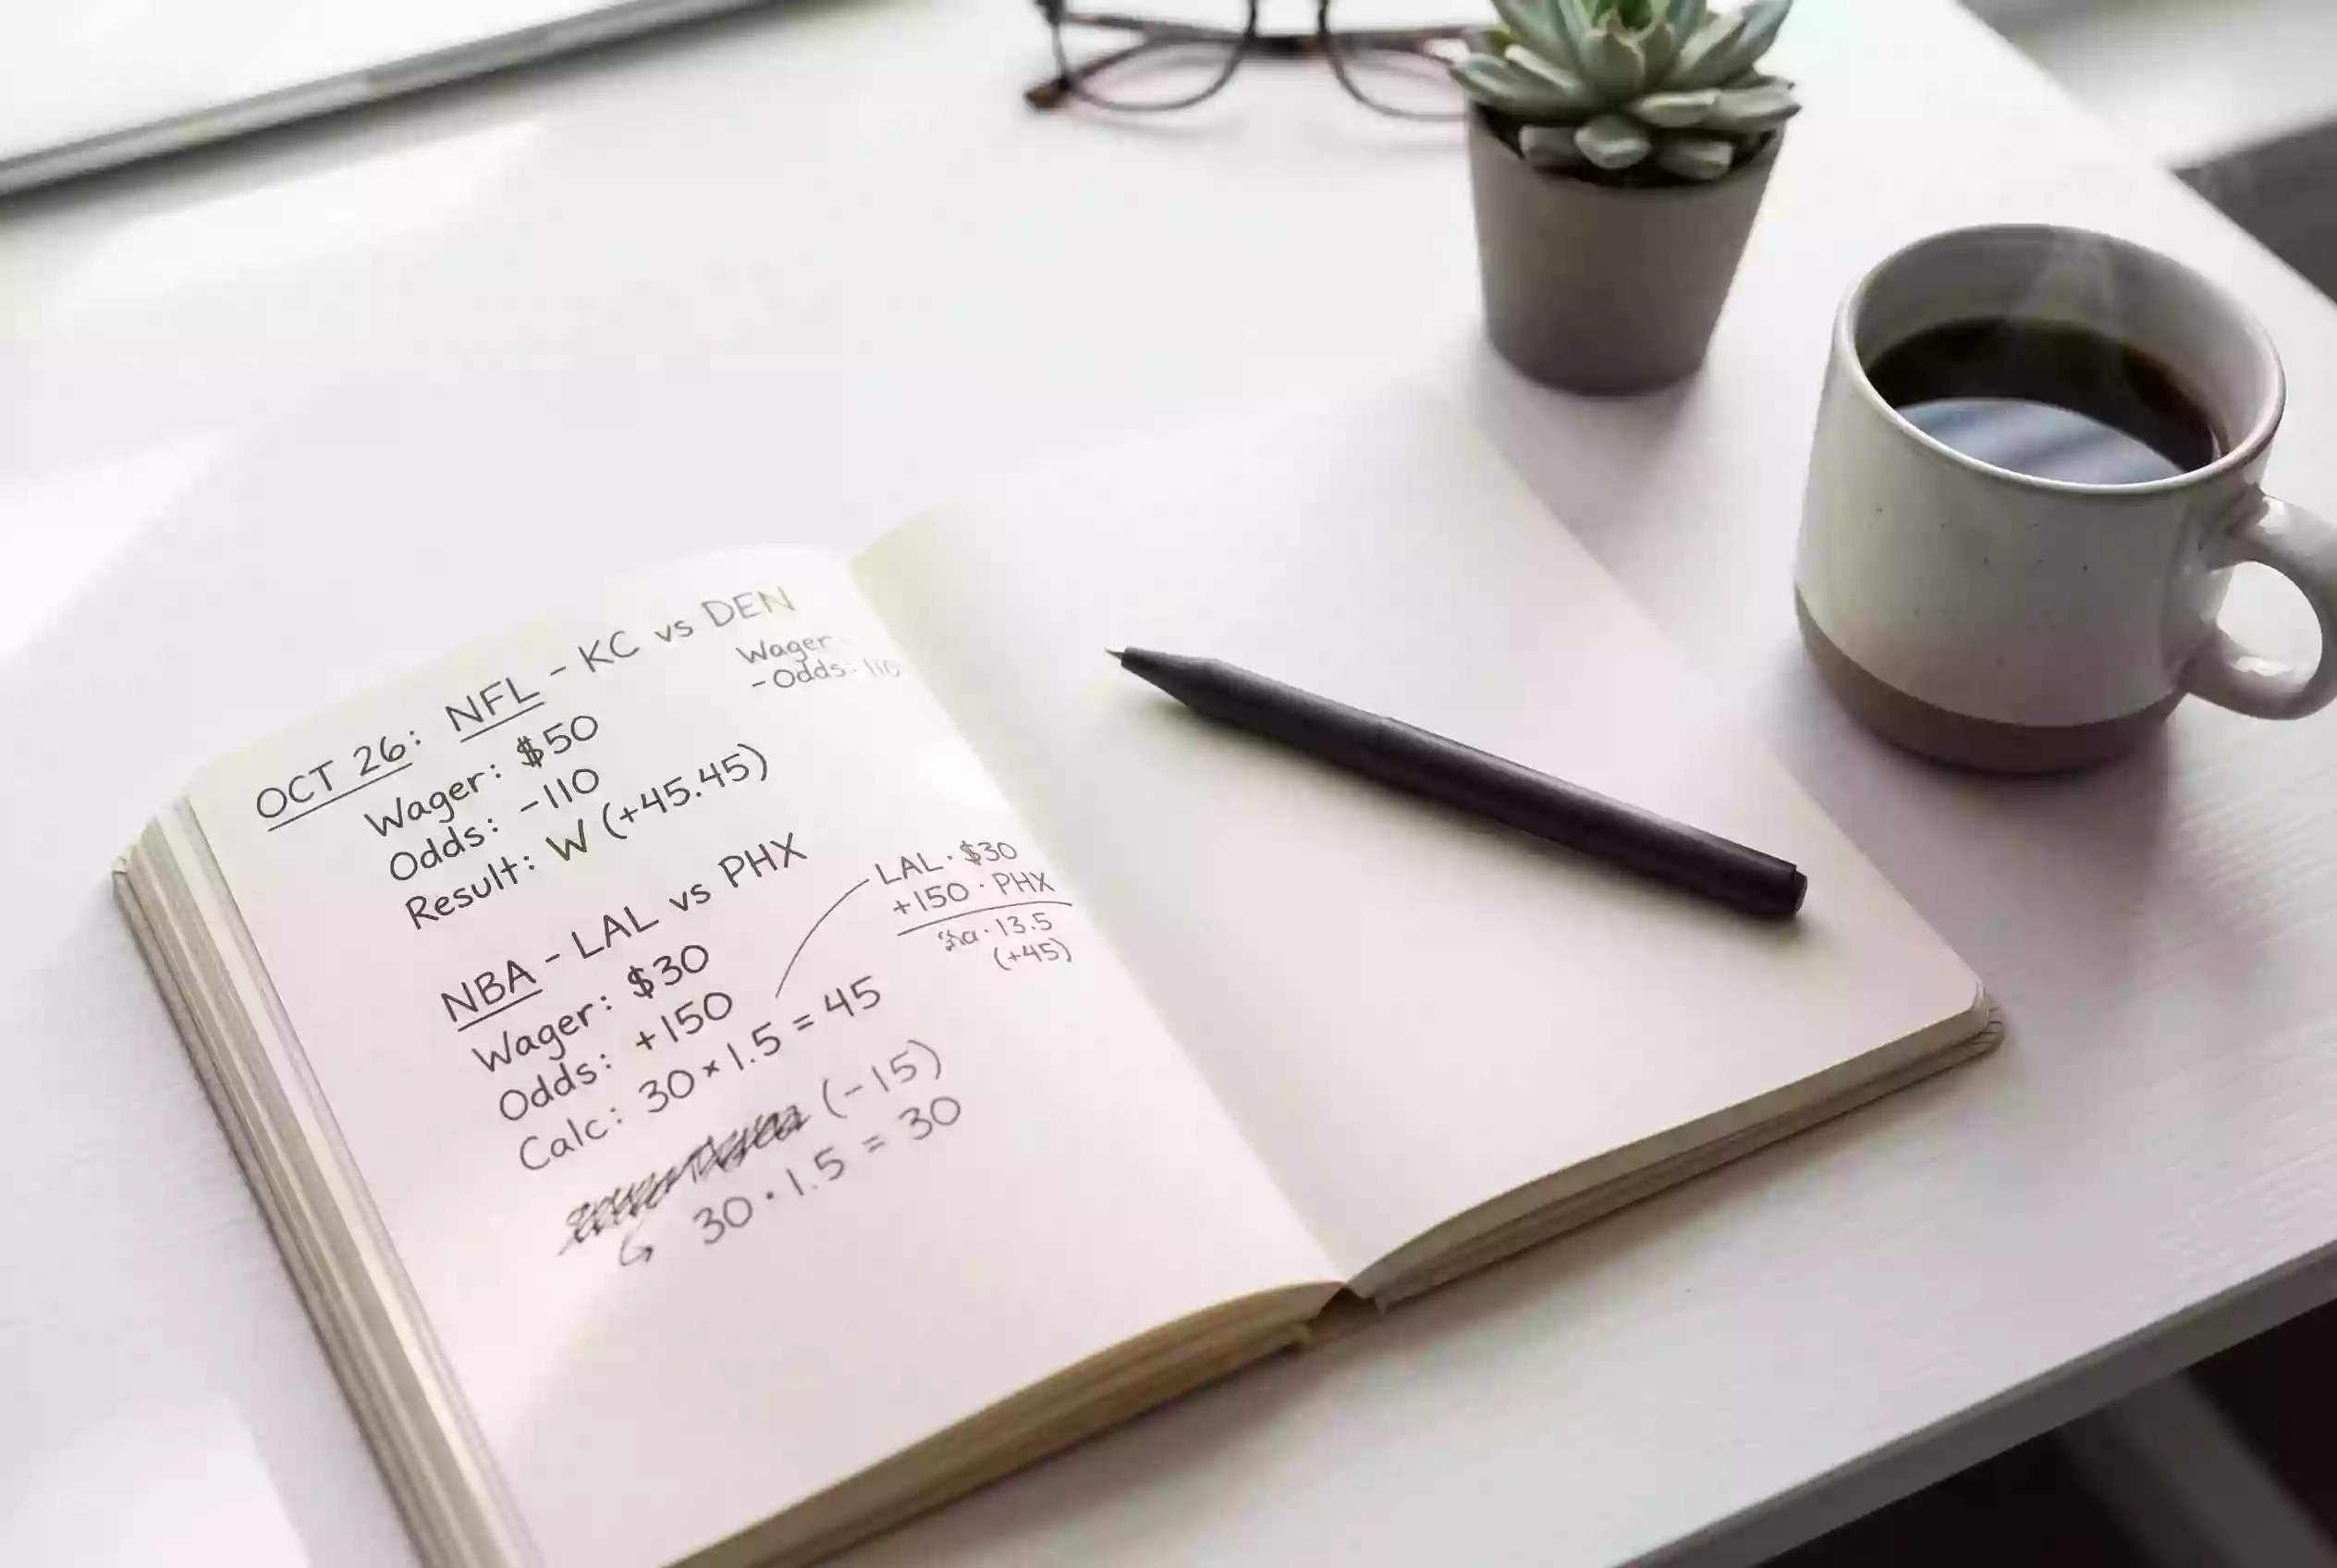 OCT 26: NFL - KC vs DEN
Wager:
- Odds: 110
Wager: $50
Odds: -110
Result: W (+45.45)
NBA - LAL vs PHX
Wager: $30
Odds: +150
Calc: 30 × 1.5 = 45
(-15)
30 · 1.5 = 30
LAL · $30
+150 · PHX
· 13.5
(+45)